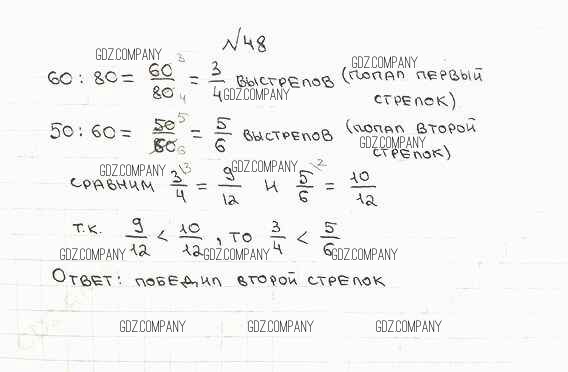 №48
GDZ.COMPANY GDZ.COMPANY
60 : 80 = 60/80 3 4 = 3/4 выстрелов (попал первый
GDZ.COMPANY
стрелок)
50 : 60 = 50/60 5 6 = 5/6 выстрелов (попал второй
GDZ.COMPANY
стрелок)
GDZ.COMPANY GDZ.COMPANY
Сравним 3/4 \3 = 9/12 и 5/6 \2 = 10/12
т.к. 9/12 < 10/12, то 3/4 < 5/6
GDZ.COMPANY GDZ.COMPANY GDZ.COMPANY
Ответ: победил второй стрелок
GDZ.COMPANY GDZ.COMPANY GDZ.COMPANY